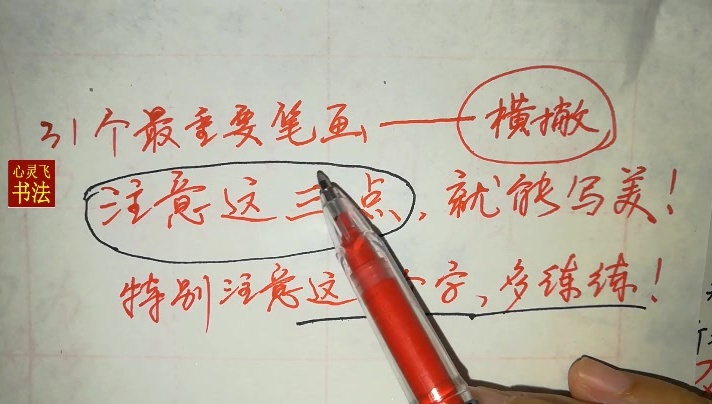 31个最重要笔画——横撇
心灵飞
书法
注意这三点，就能写美！
特别注意这个字，多练练！